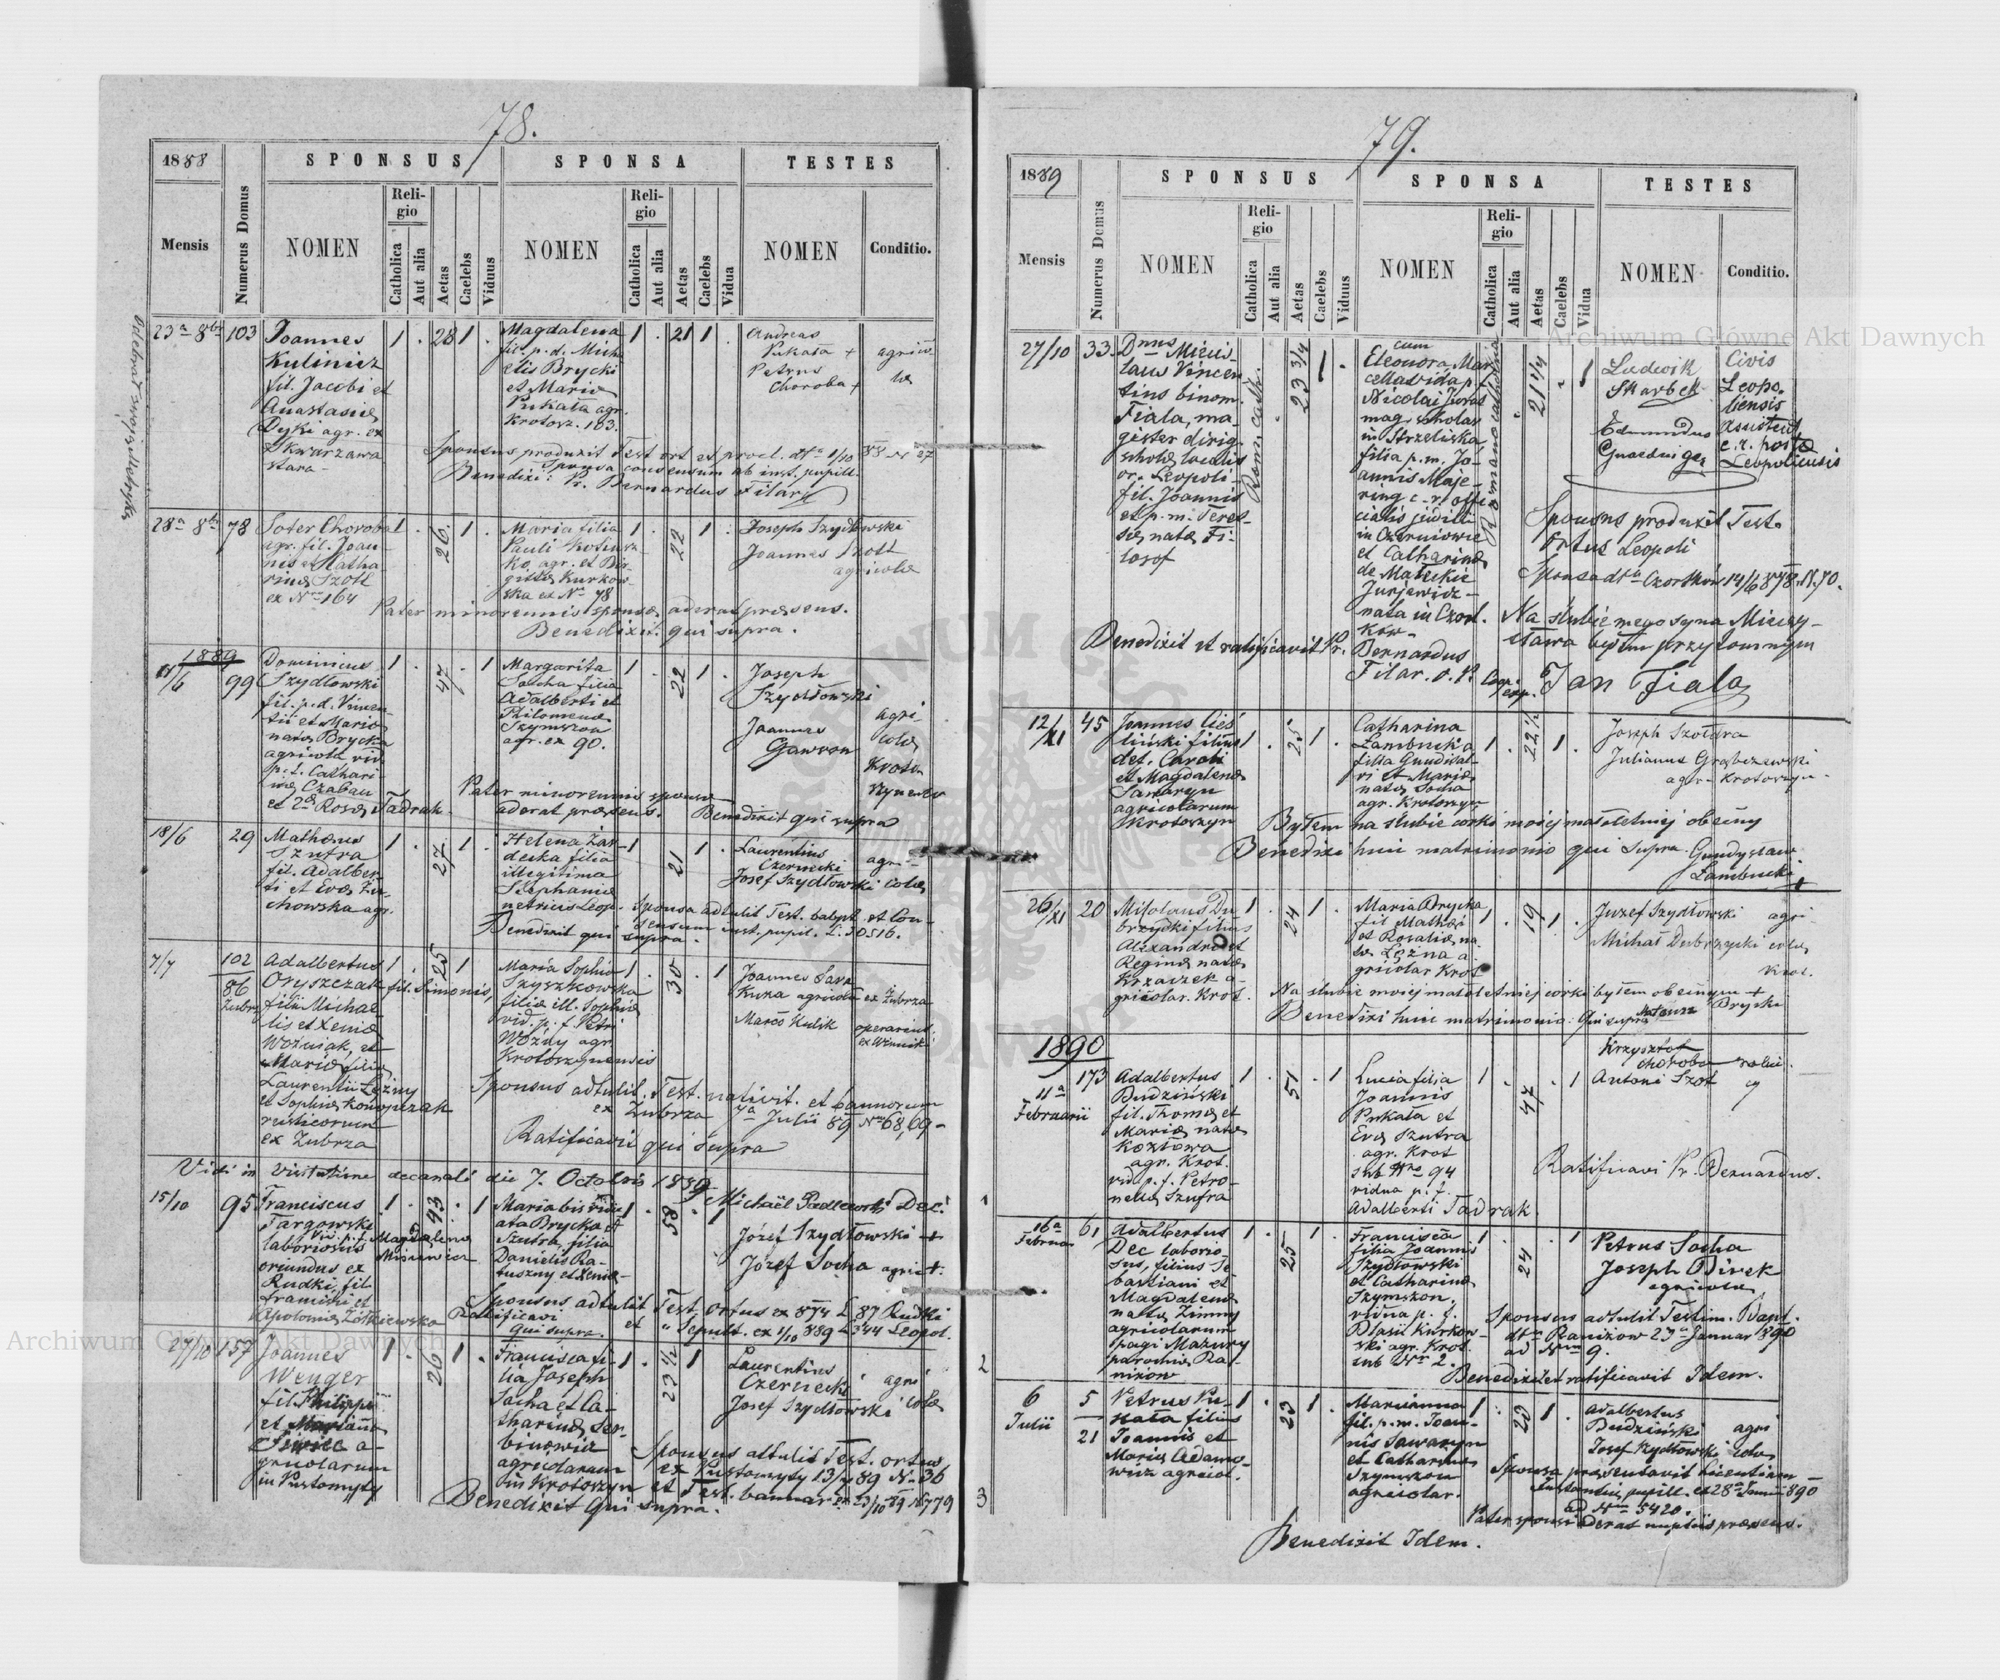 78.
1888
SPONSUS
SPONSA
TESTES
Mensis
Numerus Domus
NOMEN
Religio
Catholica
Aut alia
Aetas
Caelebs
Viduus
NOMEN
Religio
Catholica
Aut alia
Aetas
Caelebs
Vidua
NOMEN
Conditio.
23a 8bris 103
Joannes
Kulinicz
fil. Jacobi et
Anastasiæ
Dyki agr. ex
Skwarzawa
stara
1 . 28 1 .
Magdalena
fil. p. d. Micha-
elis Brycki
et Maria
Pukała agr.
Krotosz. 103.
1 . 21 1 .
Andreas
Pukała +
Petrus
Choroba +
agrico
læ
Sponsus produxit Test. ort et procl. dto 1/10 88 N 27
Sponsa consensum ab inst. pupill.
Benedixi: Pr. Bernardus Filar
28a 8bris 78
Soter Choroba
agr. fil. Joan-
nis et Catha
rinæ Szott
ex Nro 164
1 . 26. 1 .
Maria filia
Pauli
ko agr. et Bri-
gittæ Kurkow-
ska ex Nro 78
. 22 1 .
Joseph Szydłowski
Joannes Szott
agricolæ
Pater minorennis sponsæ aderat præsens.
Benedixit qui supra.
1889
11/6 99
Dominicus
Szydłowski
fil. p. d. Vincen-
tii et Mariæ
natæ Brycka
agricola vid.
p. f. Cathari-
næ Czaban
et 2dæ Rosæ Tadrak
1 . 47. . 1
Margarita
Socha filia
Adalberti et
Philomenæ
Szymszon
agr. ex 90.
1 . 22 1 .
Joseph
Szydłowski
Joannes
Gawron
agri
colæ
Kroto
szynenses
Pater minorennis sponsæ
aderat præsens.
Benedixit qui supra
18/6 29
Mathæus
Szufra
fil. Adalber-
ti et Evæ Żu-
chowska agr.
1 . 27. 1 .
Helena Zas-
decka filia
illegitima
Stephaniæ
netricis Leop.
1 . 21 1 .
Laurentius
Czernecki
Josef Szydłowski
agri-
colæ
Sponsa adtulit Test. bapt. et Con-
sensum inst. pupil. L. 30516.
Benedixit qui supra.
7/7 102
86
Zubrza
Adalbertus
Oryszczak fil. Simonis,
filii Michae-
lis et Xeniæ
Woźniak, et
Mariæ filiæ
Laurentii Leżny
et Sophiæ Konopczak
rusticorum
ex Zubrza
1 . 25 1
Maria Sophia
Szyszkowska
filia ill. Sophiæ
vid. p. f. Petri
Woźny agr.
Krotoszynensis
1 . 30 . 1
Joannes Sas
Kuza agricola ex Zubrza
Marcs Kulik operarius
ex Winnik
Sponsus adtulit Test. nativit. et bannorum
ex Zubrza 7a Julii 89 Nro 68, 69 -
Ratificavit qui supra
Vidi in visitatione decanali die 7. Octobris 1889 Michaël Podlewski Dec.
15/10 95
Franciscus
Targowski
vid. p. f. Magdalenæ
laboriosus
oriundus ex
Rudki, fil.
Francisci et
Apoloniæ Żółkiewska
1 . 43 . 1
Maria bis vidu
ata Brycka et
Szufra filia
Danielis Ra-
tuszny et Xeniæ
1 . 58 . 1
Józef Szydłowski +
Józef Socha agric +.
Sponsus adtulit Test. ortus ex 874 L 87 Rudki
et " Sepult. ex 1/10 889 L 344 Leopol.
Ratificavi
qui supra.
27/10 157
Joannes
Wenger
fil. Philippi
et Marianna
a-
gricolarum
in Pustomyty
1 . 26 1 .
Francisca fi-
lia Joseph
Socha et Ca-
tharinæ Ser-
binowicz
agricolarum
in Krotoszyn
1 . 23 1/2 1
Laurentius
Czernecki
Josef Szydłowski
agri
colæ
Sponsus attulit Test. ortus
ex Pustomyty 13/10 89 N. 36
et Test. bannor ex 23/10 89 N 779
Benedixit qui supra.
79.
1889
SPONSUS
SPONSA
TESTES
Mensis
Numerus Domus
NOMEN
Religio
Catholica
Aut alia
Aetas
Caelebs
Viduus
NOMEN
Religio
Catholica
Aut alia
Aetas
Caelebs
Vidua
NOMEN
Conditio.
27/10 33.
Dnus Miecis-
laus Vincen
tius binom.
Fiala, ma-
gister dirig.
scholæ localis
or. Leopoli-
fil. Joannis
et p. m. There-
sæ natæ Fi-
losof
Rom. cath.
. 23 3/4 1 .
cum
Eleonora Mar
cella vidua p. f.
Nicolai Juras
mag. scholar.
in Strzeliska
filia p. m. Jo-
annis Maje-
ring c. r. offi-
cialis
in Czerniowce
et Catharinæ
de Małeckie
Jurjewicz-
nata in Czort-
ków-
Romano catholica
. 21 1/4 . 1
Ludwik
Skarbek
Civis
Leopo-
liensis
Edmundus
Assistent
c. r. postæ
Leopoliensis
Sponsus produxit Test.
ortus Leopoli
Sponsa dto Czortków 14/6 878. N. 70.
Na ślubie mego syna Mieczy-
sława byłem przytomnym
Jan Fiala
Benedixit et ratificavit Pr.
Bernardus
Filar. O. P. Coop. exp.
12/XI 45
Joannes Cieś
liński filius
def. Caroli
et Magdalenæ
Sawaryn
agricolarum
Krotoszyn
1 . 25 1 .
Catharina
Łambucka
filia Gundisal-
vi et Mariæ
natæ Socha
agr. Krotoszyn
1 . 22 1/2 1 .
Joseph Szofara
Julianus Grabczewski
agr. Krotoszyn.
Byłem na ślubie córki mojej małoletniej obecny
Gundysław
Łambucki +
Benedixi huic matrimonio qui supra.
26/XI 20
Mikolaus Du-
brzycki filius
Alexandri et
Reginæ natæ
Krzaczek a-
gricolar. Krot.
1 . 24 1 .
Maria Brycka
fil. Mathæi
et Rosaliæ na-
tæ Leżna a-
gricolar Krot
1 . 19 1 .
Juzef Szydłowski agri
Michał Dubrzycki colæ
Krot.
Na ślubie mojej małoletniej córki byłem obecnym +
Mateusz Brycki
Benedixi huic matrimonio: Qui supra
1890
11a
Februarii
173
Adalbertus
Budziński
fil. Thomæ et
Mariæ natæ
Kozłowa
agr. Krot.
vid. p. f. Petro-
nellæ Szufra
1 . 51 . 1
Lucia filia
Joannis
Pukała et
Evæ Szufra
agr. Krot
sub Nro 94
vidua p. f.
Adalberti Tadrak
1 . 47 . 1
Krzysztof
Choroba rolni.
Antoni Szot cy
Ratificavi Pr. Bernardus.
16a
Februar 61
Adalbertus
Dec laborio-
sus, filius Se-
bastiani et
Magdalenæ
natæ Zimny
agricolarum
pagi Mazury
parochiæ Ra-
niżow
1 . 25 1 .
Francisca
filia Joannis
Szydłowski
et Catharinæ
Szymszon,
vidua p. f.
Blasii Kurkow-
ski agr. Krot.
sub Nro 2.
1 . 24 . 1
Petrus Socha
Joseph Direk
agricola
Sponsus adtulit Testim. Bapt.
dto Raniżow 23a Januar 890
ad Nrum 9.
Benedixit et ratificavit Idem.
6
Julii
5
21
Petrus Pu-
kała filius
Joannis et
Mariæ Adamo-
wicz agricol.
1 . 23 1 .
Marianna
fil. p. m. Joan-
nis Sawaryn
et Catharinæ
Szymszon
agricolar.
1 . 20 1 .
Adalbertus
Budziński agri
Josef Szydłowski colæ
Sponsa præsentavit licentiam
Instantiæ pupill. ex 28a Junii 890
ad Nrum 5420.
Pater sponsi aderat nuptiis præsens.
Benedixit Idem.
1
2
3
Archiwum Główne Akt Dawnych
Archiwum Główne Akt Dawnych